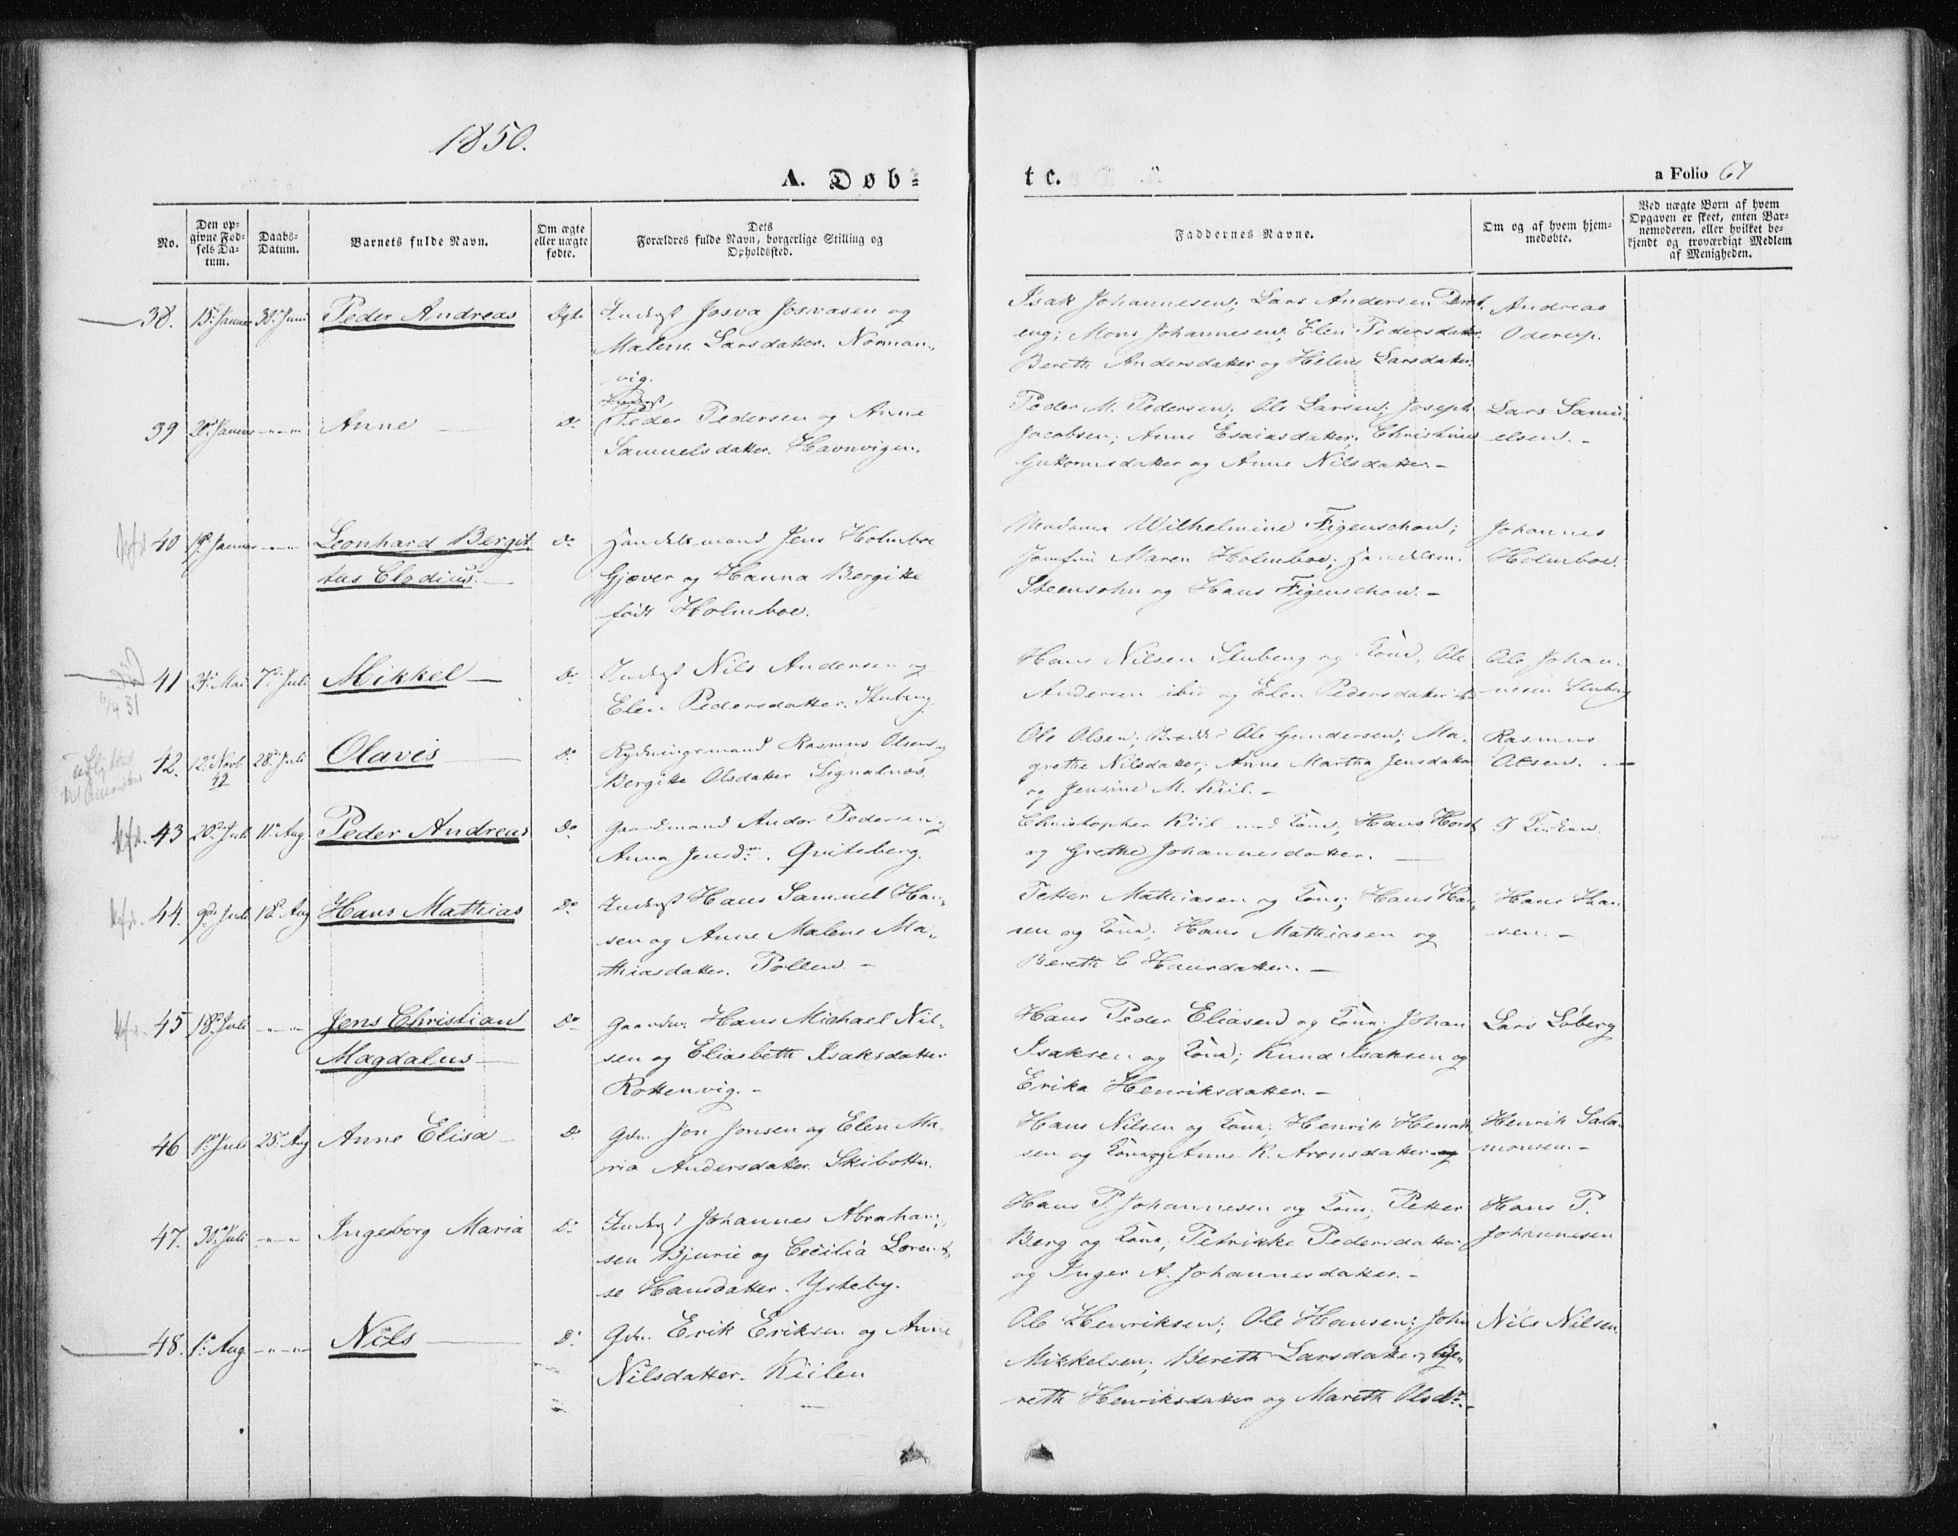 1850.
A. Døb=
te.
a Folio 67
No.
Den op-
givne Fød-
sels Da-
tum.
Daabs-
Datum.
Barnets fulde Navn.
Om ægte
eller uægte
fødte.
Dets
Forældres fulde Navn, borgerlige Stilling og
Opholdssted.
Faddernes Navne.
Om og af hvem hjem-
medøbte.
Ved uægte Børn af hvem
Opgaven er skeet, enten Bar-
nemoderen, eller hvilket be-
kjendt og troværdigt Medlem
af Menigheden.
38. 15de Januar 30te Juni Peder Andreas Ægte Josva Josvasen og
Malene Larsdatter. Norman-
vig.
Isak Johannesen; Lars Andersen
eng; Mons Johannesen; Elen Pedersdatter
Bereth Andersdatter og Helene Larsdatter
Andreas
39 Januar Anne Do Peder Pedersen og Anne
Samuelsdatter. Havnvigen.
Peder M. Pedersen; Ole Larsen; Joseph
Jacobsen; Anne Esaiasdatter; Christine
Guttormsdatter og Anne Nilsdatter. -
Lars Samu-
elsen. -
40 Januar Leonhard Bergit-
tus Clodius Do Handelsmand Jens Holmboe
Gjæver og Hanna Bergitte
født Holmboe.
Madame Wilhelmine Figenschou;
Jomfru Maren Holmboe; Handelsm.
Steensohn og Hans Figenschou. -
Johannes
Holmboe.
41 Mai 7de Juli Mikkel Do Nils Andersen og
Elen Pedersdatter. Stuberg.
Hans Nilsen Stuberg og Kone, Ole
Andersen ibid og Elen Pedersdatter
Ole Johan-
nesen Stuberg
42. 12te Novb 28de Juli Olavis Do Rydningsmand Rasmus Olsen og
Bergitte Olsdatter Signalnæs.
Ole Olsen; Ole Gundersen; Ma-
grethe Nilsdatter; Anne Martha Jensdatter
og Jensine M. Kiil. -
Rasmus
Olsen.
43 20de Juli 11te Aug Peder Andreas Do Gaardmand Andor Pedersen og
Anna Jensdr. Qviteberg.
Christopher Kiil med Kone; Hans Horst
og Grethe Johannesdatter.
44. 9de Juli 18de Aug Hans Mathias Do Hans Samuel Han-
sen og Anne Malene Ma-
thiasdatter. Pollen. -
Petter Mathiasen og Kone; Hans Han-
sen og Kone; Hans Mathiasen og
Bereth C Hansdatter. -
Hans Han-
sen. -
45 18de Juli Jens Christian
Magdalus Do Gaardm. Hans Michael Nil-
sen og Eliasbeth Isaksdatter
Rottenvig. -
Hans Peder Eliasen og Kone; Johan
Isaksen og Kone; Knud Isaksen og
Erika Henriksdatter. -
Lars Løberg
46 1ste Juli 25de Aug Anne Elisa Do Gdm. Jon Jonsen og Elen Ma-
ria Andersdatter. Skibotten.
Hans Nilsen og Kone; Henrik Henrik-
sen og Kone og Anne K. Aronsdatter
Henrik Sala-
monsen. -
47. 30te Juli Ingeborg Maria Do Johannes Abraham-
sen Bjurie og Cecilia Loren-
se Hansdatter. Ysteby.
Hans P. Johannesen og Kone; Petter
Berg og Kone; Petrikke Pedersdatter
og Inger A. Johannesdatter. -
Hans P.
Johannesen
48. 1ste Aug Nils Do Gdm. Erik Eriksen og Anne
Nilsdatter. Kiilen
Ole Henriksen; Ole Hansen; John
Mikkelsen; Bereth Larsdatter, Be-
reth Henriksdatter og Mareth Olsdr. -
Nils Nilsen